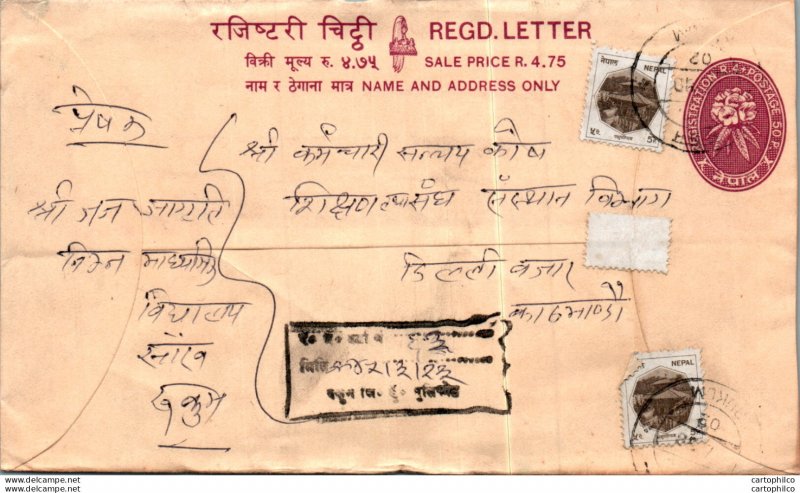 रजिष्टरी चिट्ठी REGD. LETTER
विक्री मूल्य रु. ४.७५ SALE PRICE R. 4.75
नाम र ठेगाना मात्र NAME AND ADDRESS ONLY
नेपाल NEPAL
५रु. 5R
REGISTRATION & POSTAGE 50 P.
नेपाल
प्रेषक
श्री जन जागृति
निम्न माध्यमिक
विद्यालय
रुकुम
श्री कर्मचारी सञ्चय कोष
शिक्षण संस्थान विभाग
डिल्ली बजार
काठमाण्डौ
मिति
रुकुम जि. हु.
NEPAL
cartophilco
cartophilco